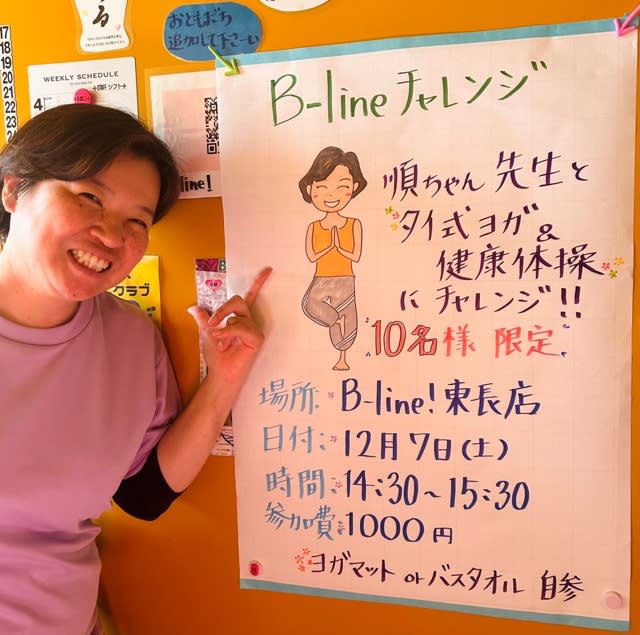 17
18
19
20
21
22
23
24
おともだち
追加して下さーい
WEEKLY SCHEDULE
4
ine!
クラブ
B-line チャレンジ
順ちゃん 先生と
タイ式ヨガ&
健康体操
にチャレンジ!!
10名様 限定
場所: B-line! 東長店
日付: 12月7日(土)
時間: 14:30〜15:30
参加費: 1000円
ヨガマット or バスタオル 自参